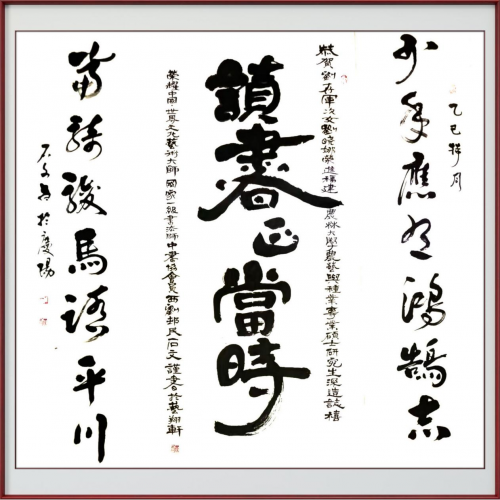 少年應有鴻鵠志
乙巳祥月
恭賀劉在軍次女劉曉娜榮進福建農林大學農藝與種業專業碩士研究生深造誌禧
讀書正當時
榮耀中國世界文化藝術大師國家一級書法師中書協會員西劉邦民石文謹書於藝翔軒
當騎駿馬踏平川
石文書於慶陽